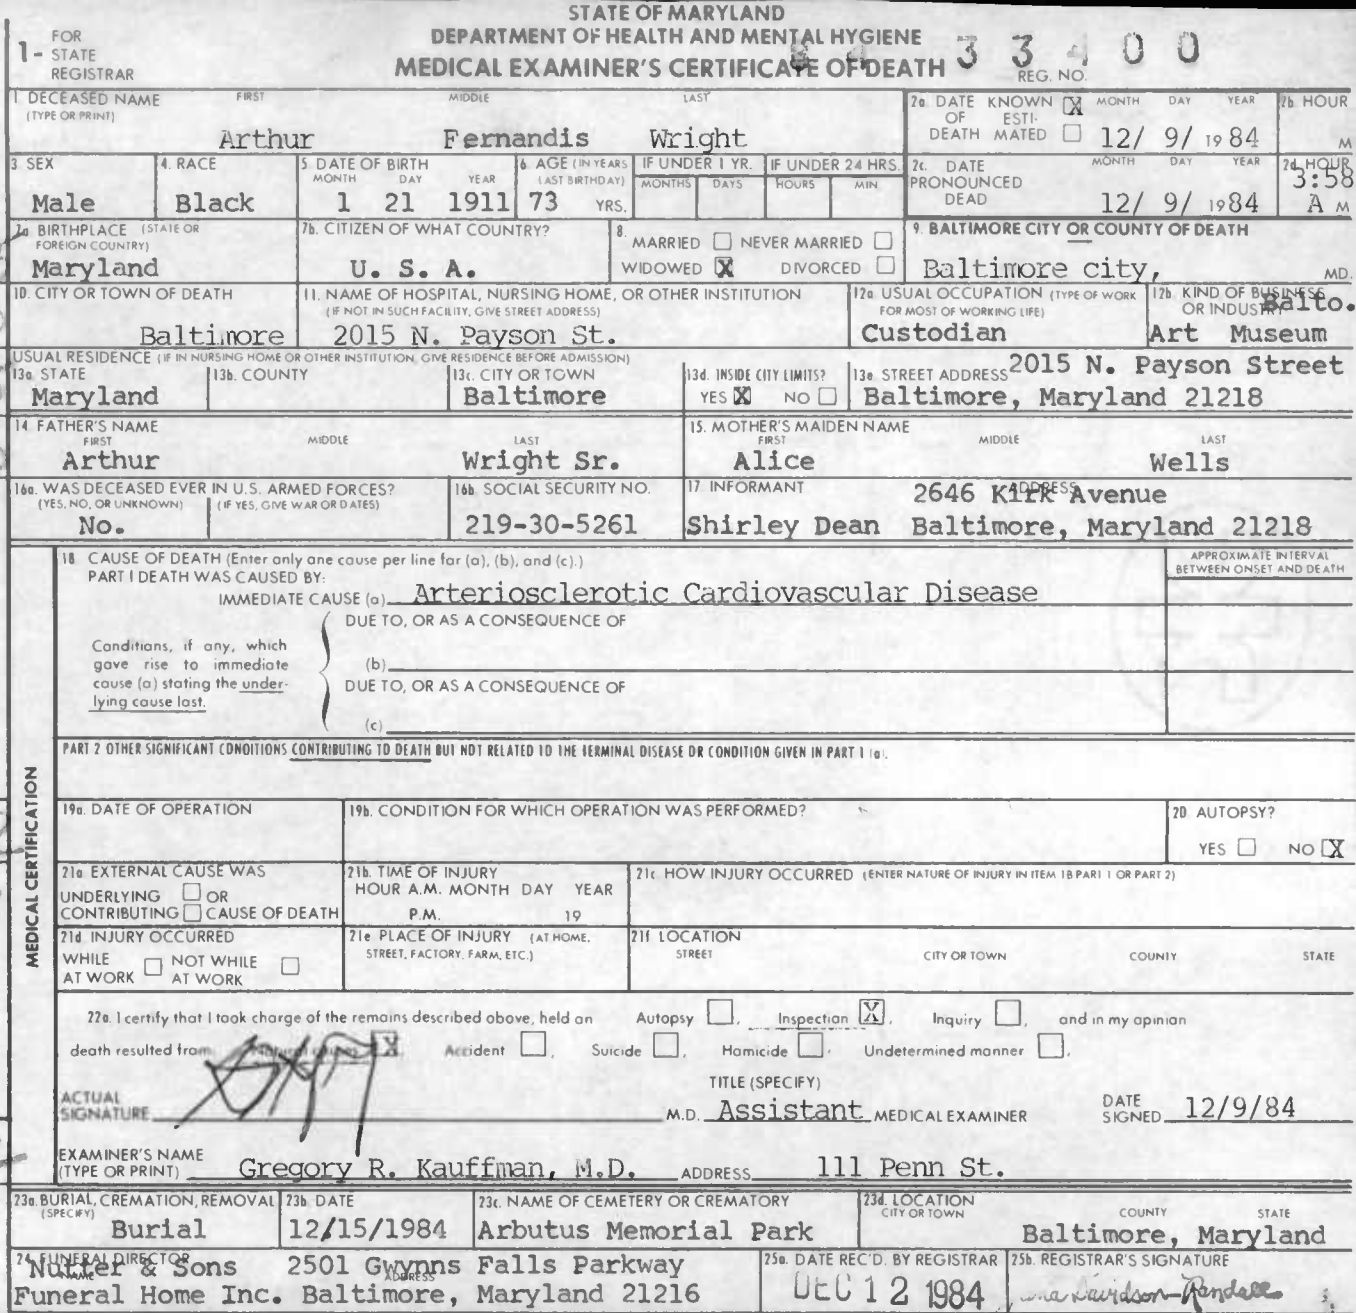 STATE OF MARYLAND
DEPARTMENT OF HEALTH AND MENTAL HYGIENE
MEDICAL EXAMINER'S CERTIFICATE OF DEATH
1- FOR STATE REGISTRAR
33400
REG. NO.
1 DECEASED NAME (TYPE OR PRINT) FIRST MIDDLE LAST
Arthur Fernandis Wright
2a DATE OF DEATH KNOWN X ESTIMATED MONTH DAY YEAR
12/ 9/ 1984
2b HOUR M
3 SEX
Male
4. RACE
Black
5 DATE OF BIRTH MONTH DAY YEAR
1 21 1911
6 AGE (IN YEARS LAST BIRTHDAY)
73 YRS.
IF UNDER 1 YR. MONTHS DAYS
IF UNDER 24 HRS. HOURS MIN
2c. DATE PRONOUNCED DEAD MONTH DAY YEAR
12/ 9/ 1984
2d HOUR
3:58 A M
7a BIRTHPLACE (STATE OR FOREIGN COUNTRY)
Maryland
7b. CITIZEN OF WHAT COUNTRY?
U. S. A.
8. MARRIED NEVER MARRIED
WIDOWED X DIVORCED
9. BALTIMORE CITY OR COUNTY OF DEATH
Baltimore city, MD.
10. CITY OR TOWN OF DEATH
Baltimore
11. NAME OF HOSPITAL, NURSING HOME, OR OTHER INSTITUTION
(IF NOT IN SUCH FACILITY, GIVE STREET ADDRESS)
2015 N. Payson St.
12a USUAL OCCUPATION (TYPE OF WORK FOR MOST OF WORKING LIFE)
Custodian
12b KIND OF BUSINESS OR INDUSTRY
Balto. Art Museum
USUAL RESIDENCE (IF IN NURSING HOME OR OTHER INSTITUTION, GIVE RESIDENCE BEFORE ADMISSION)
13a STATE
Maryland
13b. COUNTY
13c. CITY OR TOWN
Baltimore
13d. INSIDE CITY LIMITS?
YES X NO
13e STREET ADDRESS
2015 N. Payson Street
Baltimore, Maryland 21218
14 FATHER'S NAME FIRST MIDDLE LAST
Arthur Wright Sr.
15. MOTHER'S MAIDEN NAME FIRST MIDDLE LAST
Alice Wells
16a. WAS DECEASED EVER IN U.S. ARMED FORCES?
(YES, NO, OR UNKNOWN) (IF YES, GIVE WAR OR DATES)
No.
16b. SOCIAL SECURITY NO.
219-30-5261
17 INFORMANT ADDRESS
2646 Kirk Avenue
Shirley Dean Baltimore, Maryland 21218
MEDICAL CERTIFICATION
18 CAUSE OF DEATH (Enter only one cause per line for (a), (b), and (c).)
PART I DEATH WAS CAUSED BY:
APPROXIMATE INTERVAL BETWEEN ONSET AND DEATH
IMMEDIATE CAUSE (a) Arteriosclerotic Cardiovascular Disease
DUE TO, OR AS A CONSEQUENCE OF
Conditions, if any, which
gave rise to immediate
cause (a) stating the under-
lying cause last.
(b)
DUE TO, OR AS A CONSEQUENCE OF
(c)
PART 2 OTHER SIGNIFICANT CONDITIONS CONTRIBUTING TO DEATH BUT NOT RELATED TO THE TERMINAL DISEASE OR CONDITION GIVEN IN PART 1 (a).
19a. DATE OF OPERATION
19b. CONDITION FOR WHICH OPERATION WAS PERFORMED?
20 AUTOPSY?
YES NO X
21a EXTERNAL CAUSE WAS
UNDERLYING OR
CONTRIBUTING CAUSE OF DEATH
21b. TIME OF INJURY
HOUR A.M. MONTH DAY YEAR
P.M. 19
21c HOW INJURY OCCURRED (ENTER NATURE OF INJURY IN ITEM 18 PART 1 OR PART 2)
21d INJURY OCCURRED
WHILE AT WORK NOT WHILE AT WORK
21e PLACE OF INJURY (AT HOME, STREET, FACTORY, FARM, ETC.)
21f LOCATION
STREET CITY OR TOWN COUNTY STATE
22a. I certify that I took charge of the remains described above, held an Autopsy , Inspection X , Inquiry , and in my opinion
death resulted from Natural causes X Accident , Suicide , Homicide , Undetermined manner .
ACTUAL SIGNATURE M.D.
TITLE (SPECIFY)
Assistant MEDICAL EXAMINER
DATE SIGNED 12/9/84
EXAMINER'S NAME (TYPE OR PRINT) Gregory R. Kauffman, M.D. ADDRESS 111 Penn St.
23a. BURIAL, CREMATION, REMOVAL (SPECIFY)
Burial
23b DATE
12/15/1984
23c. NAME OF CEMETERY OR CREMATORY
Arbutus Memorial Park
23d. LOCATION CITY OR TOWN COUNTY STATE
Baltimore, Maryland
24 FUNERAL DIRECTOR NAME ADDRESS
Nutter & Sons 2501 Gwynns Falls Parkway
Funeral Home Inc. Baltimore, Maryland 21216
25a. DATE REC'D. BY REGISTRAR
DEC 12 1984
25b. REGISTRAR'S SIGNATURE
Davidson-Randall